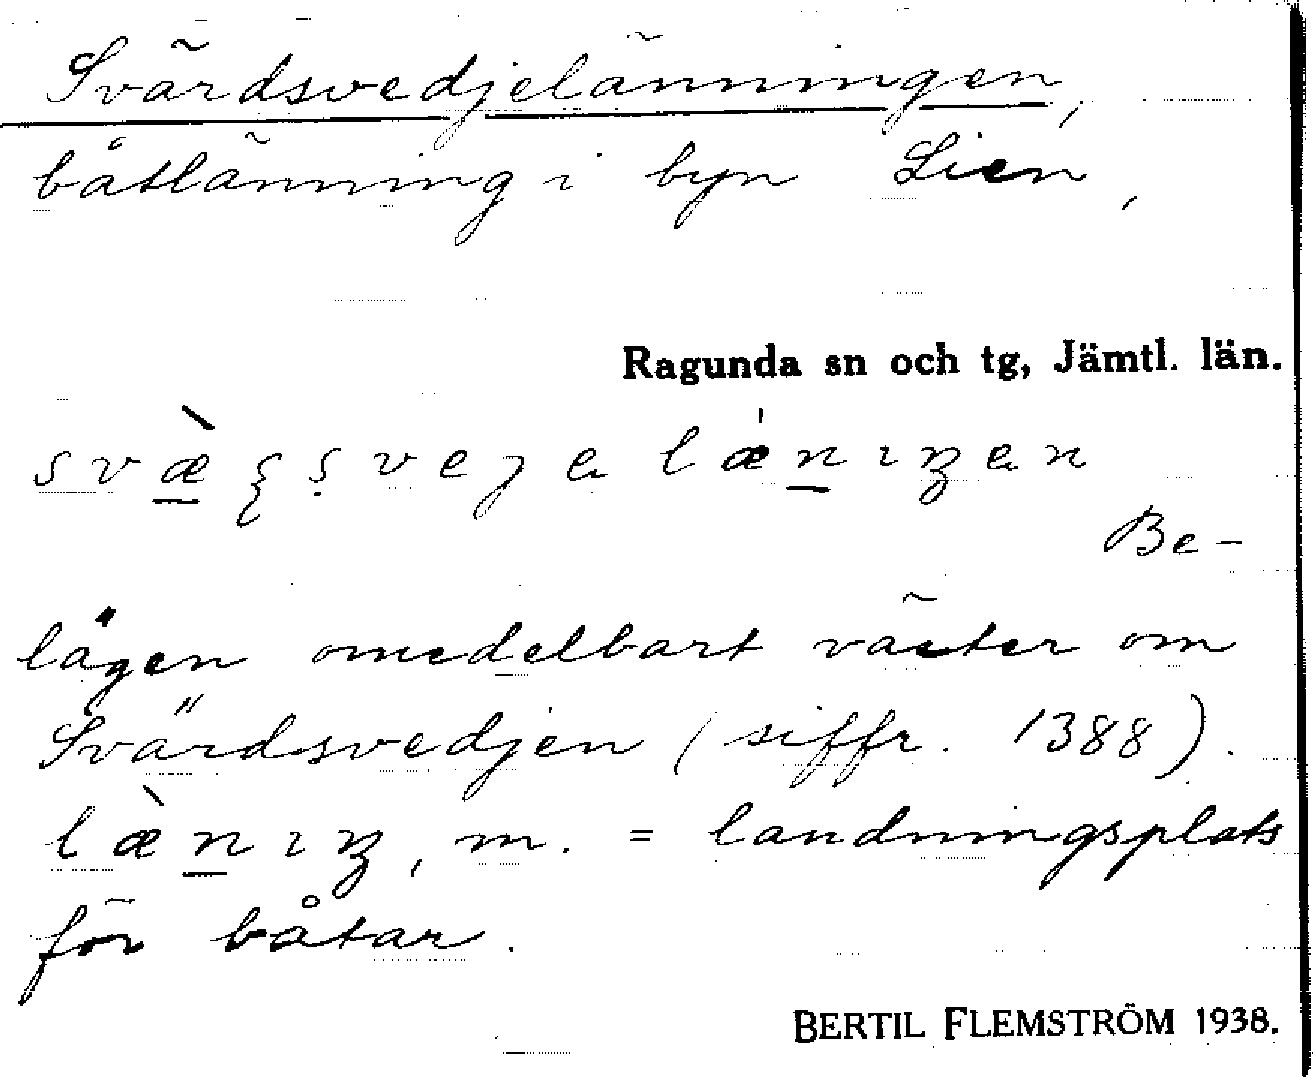 Svärdsvedjelänningen,
båtlänning i byn Lien,
Ragunda sn och tg, Jämtl. län.
Be-
lägen omedelbart väster om
Svärdsvedjen (siffr. 1388).
læ̀nıŋ, m. = landningsplats
för båtar.
BERTIL FLEMSTRÖM 1938.